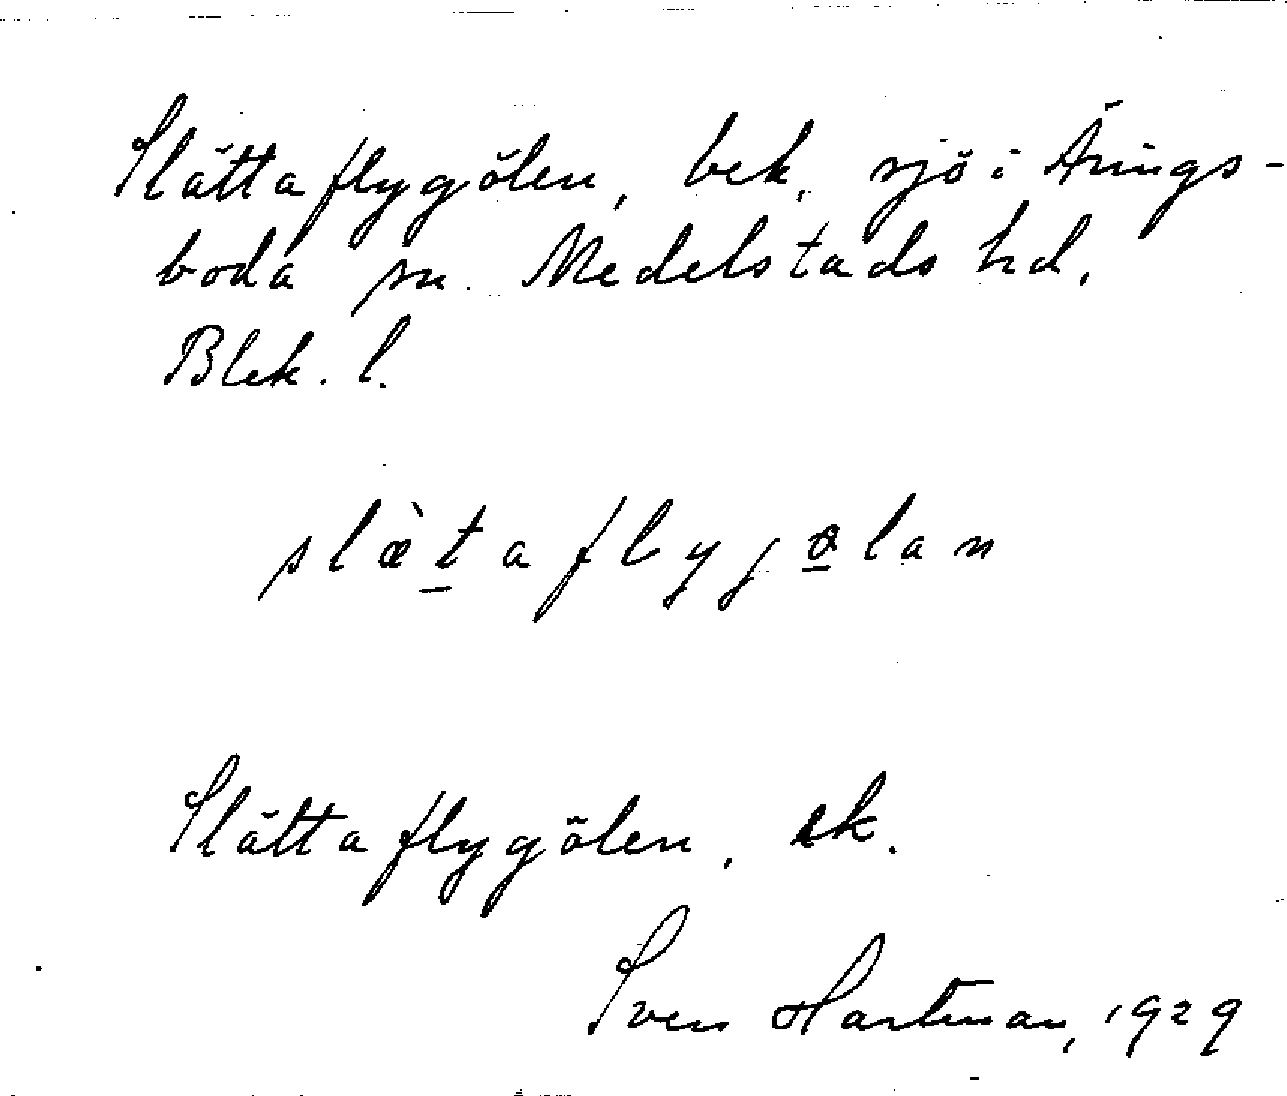 Slättaflygölen, bek. sjö i Ärings-
boda sn. Medelstads hd.
Blek. l.
slæ̀t̲aflygø̲lan
Slättaflygölen, ek.
Sven Hartman, 1929